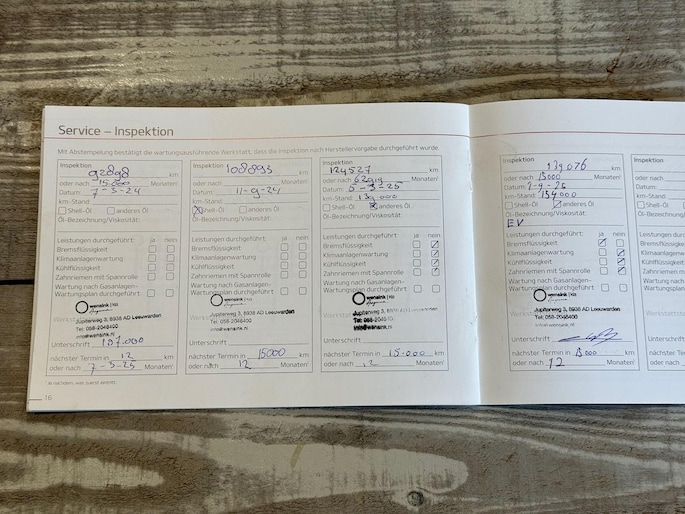 Service – Inspektion
Mit Abstempelung bestätigt die wartungsausführende Werkstatt, dass die Inspektion nach Herstellervorgabe durchgeführt wurde.
Inspektion
92898 km
oder nach 15.000 Monaten¹
Datum: 7-3-24
km-Stand:
Shell-Öl anderes Öl
Öl-Bezeichnung/Viskosität:
Leistungen durchgeführt: ja nein
Bremsflüssigkeit
Klimaanlagenwartung
Kühlflüssigkeit
Zahnriemen mit Spannrolle
Wartung nach Gasanlagen-
Wartungsplan durchgeführt
wensink | Kia
Jupiterweg 3, 8938 AD Leeuwarden
Tel: 058-2048400
info@wensink.nl
Unterschrift 107.000
nächster Termin in 12 km
oder nach 7-3-25 Monaten¹
Inspektion
108893 km
oder nach Monaten¹
Datum: 11-9-24
km-Stand:
Shell-Öl anderes Öl
Öl-Bezeichnung/Viskosität:
Leistungen durchgeführt: ja nein
Bremsflüssigkeit
Klimaanlagenwartung
Kühlflüssigkeit
Zahnriemen mit Spannrolle
Wartung nach Gasanlagen-
Wartungsplan durchgeführt
wensink | Kia
Jupiterweg 3, 8938 AD Leeuwarden
Tel: 058-2048400
info@wensink.nl
Unterschrift
nächster Termin in 15000 km
oder nach 12 Monaten¹
Inspektion
124527 km
oder nach Monaten¹
Datum: 5-3-25
km-Stand: 139000
Shell-Öl anderes Öl
Öl-Bezeichnung/Viskosität:
Leistungen durchgeführt: ja nein
Bremsflüssigkeit
Klimaanlagenwartung
Kühlflüssigkeit
Zahnriemen mit Spannrolle
Wartung nach Gasanlagen-
Wartungsplan durchgeführt
wensink | Kia
Jupiterweg 3, 8938 AD Leeuwarden
Tel: 058-2048400
info@wensink.nl
Unterschrift
nächster Termin in 15.000 km
oder nach 12 Monaten¹
¹ je nachdem, was zuerst eintritt
16
Inspektion
139076 km
oder nach Monaten¹
Datum:
km-Stand: 154000
Shell-Öl anderes Öl
Öl-Bezeichnung/Viskosität:
EV
Leistungen durchgeführt: ja nein
Bremsflüssigkeit
Klimaanlagenwartung
Kühlflüssigkeit
Zahnriemen mit Spannrolle
Wartung nach Gasanlagen-
Wartungsplan durchgeführt
wensink | Kia
Jupiterweg 3, 8938 AD Leeuwarden
Tel: 058-2048400
info@wensink.nl
Unterschrift
nächster Termin in km
oder nach 12 Monaten¹
Inspektion
oder nach
Datum:
km-Stand:
Shell-Öl
Öl-Bezeichnung
Leistungen
Bremsflüssigkeit
Klimaanlagen
Kühlflüssigkeit
Zahnriemen
Wartung nach
Wartungsplan
Unterschrift
nächster Termin
oder nach